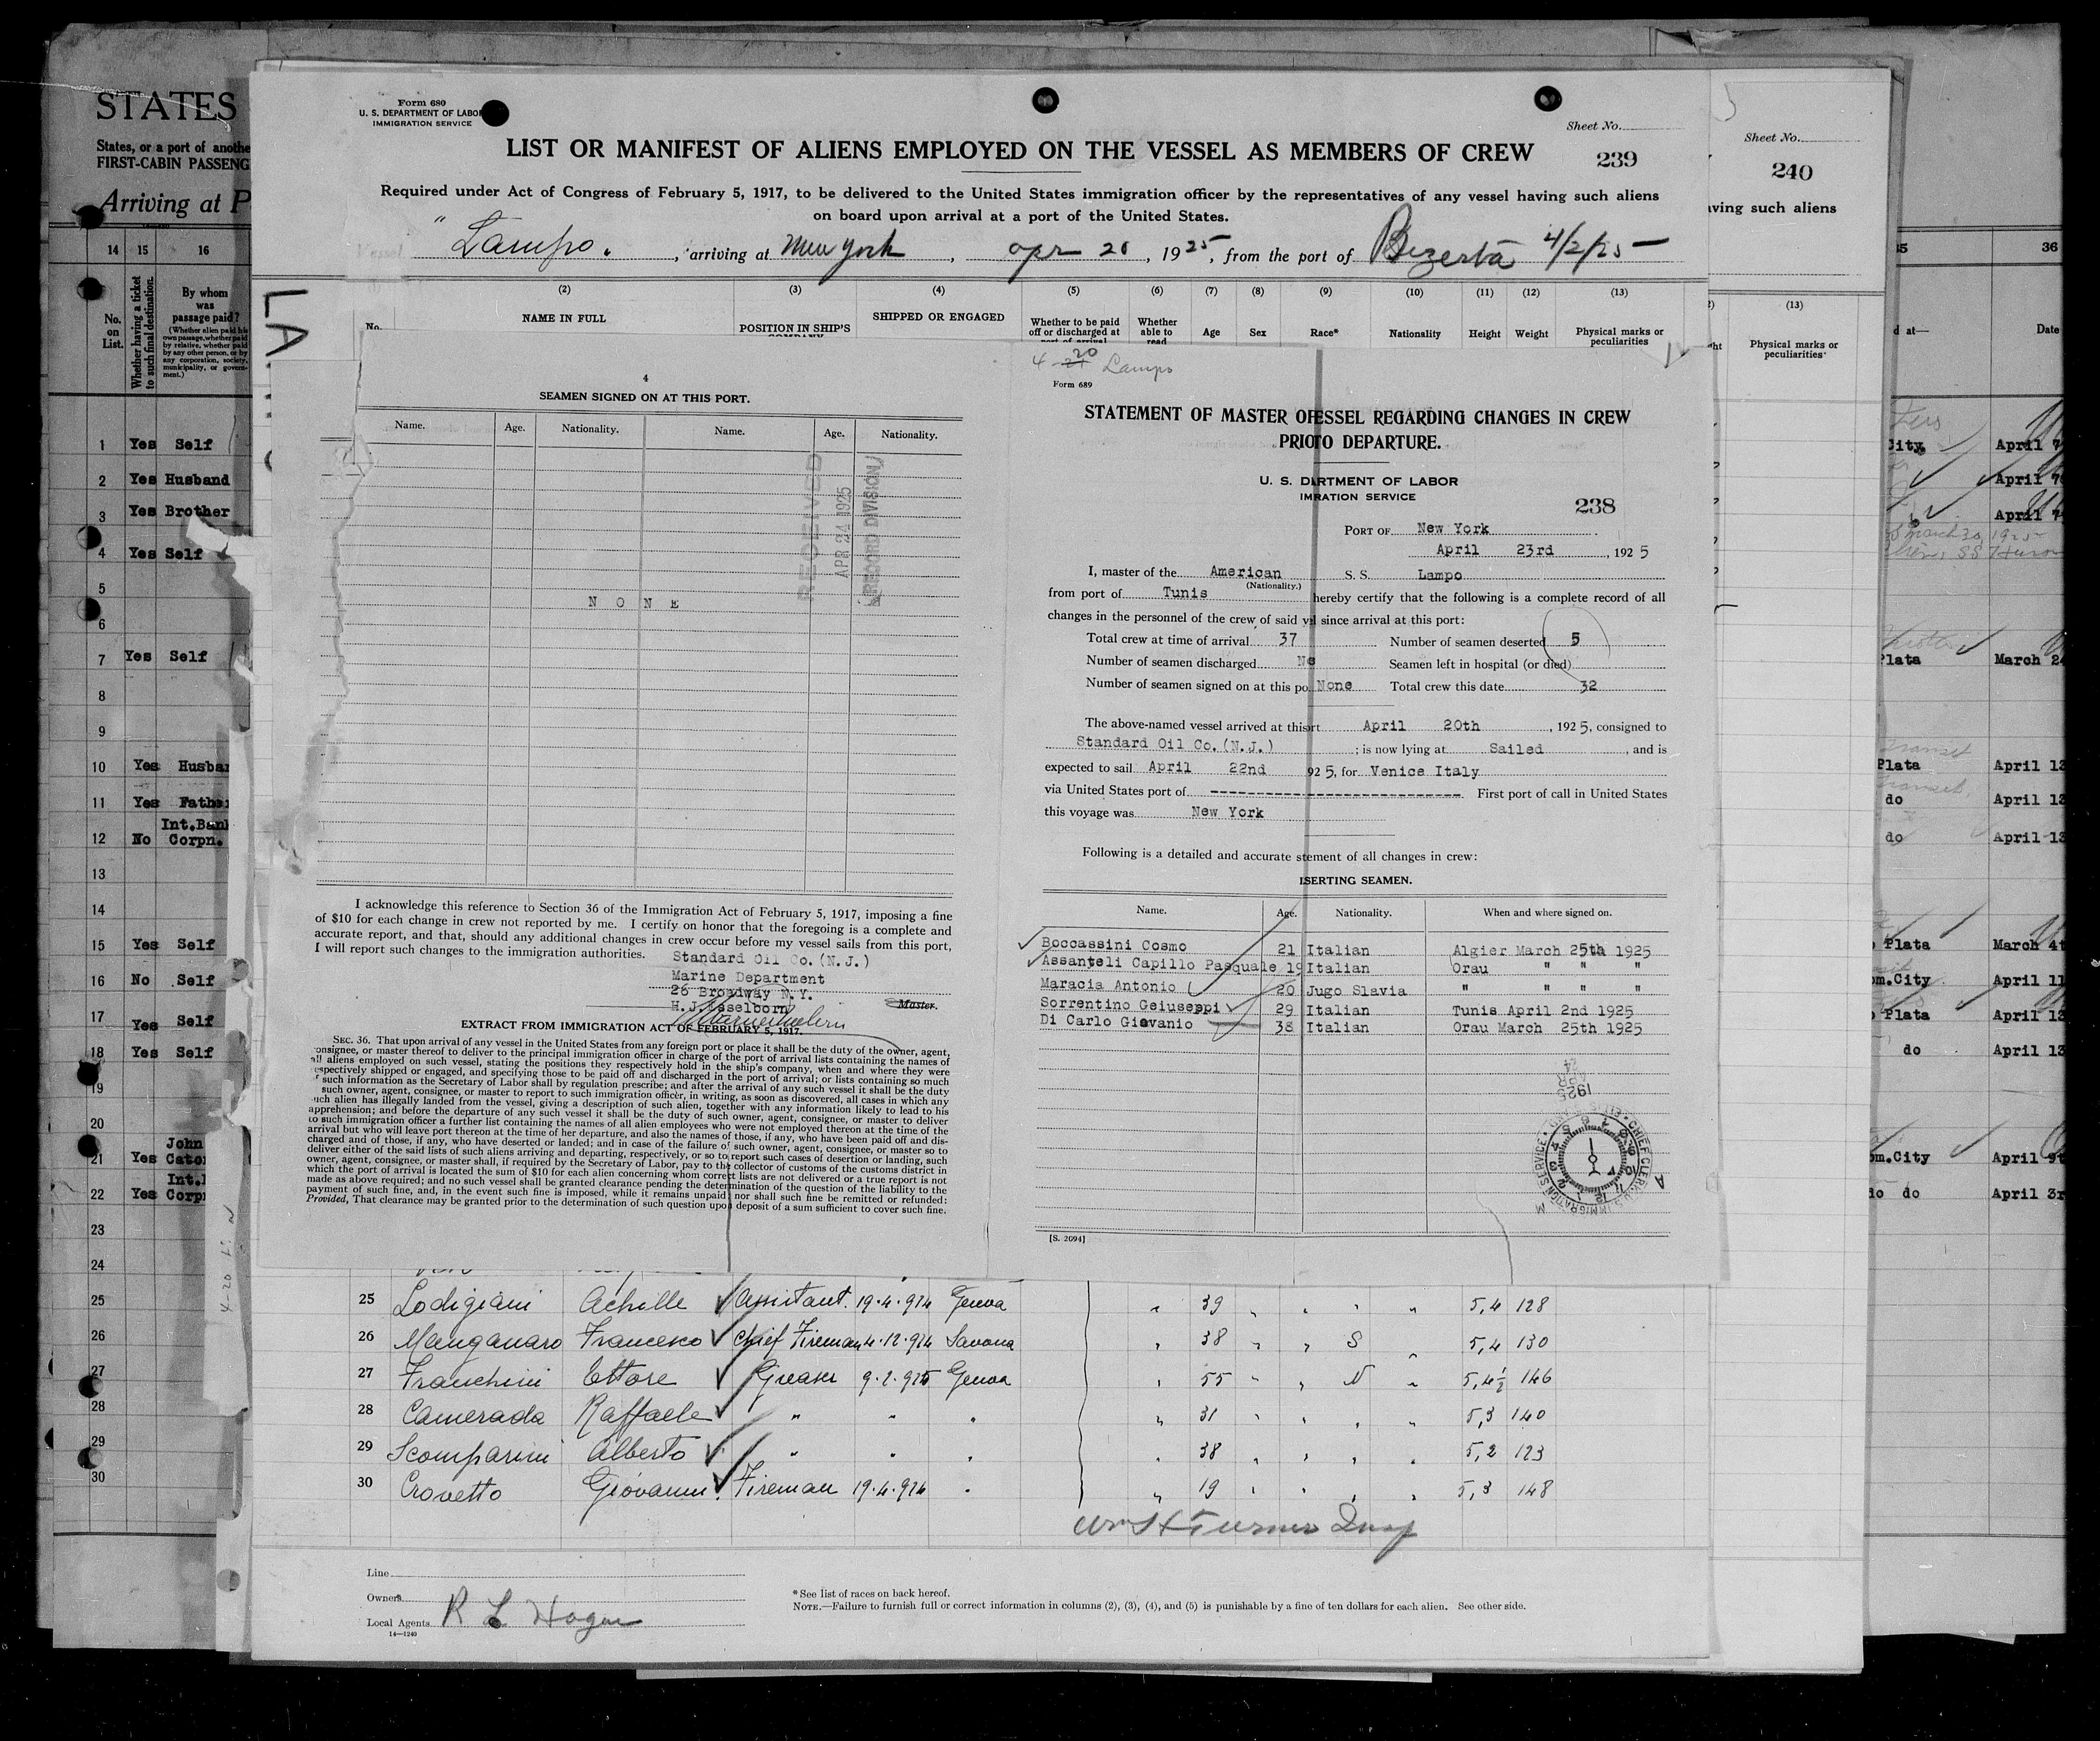 STATES
States, or a port of anothe
FIRST-CABIN PASSENG
Arriving at P
14 15 16
No. on List.
Whether having a ticket to such final destination.
By whom was passage paid?
(Whether alien paid his own passage, whether paid by relative, whether paid by any other person, or by any corporation, society, municipality, or government.)
1 Yes Self
2 Yes Husband
3 Yes Brother
4 Yes Self
5
6
7 Yes Self
8
9
10 Yes Husban
11 Yes Fathe
12 No Int.Bank Corpn.
13
14
15 Yes Self
16 No Self
17 Yes Self
18 Yes Self
19
20
21 Yes John Cato
22 Yes Int. Corp
23
24
Form 680
U. S. DEPARTMENT OF LABOR
IMMIGRATION SERVICE
Sheet No.
239
LIST OR MANIFEST OF ALIENS EMPLOYED ON THE VESSEL AS MEMBERS OF CREW
Required under Act of Congress of February 5, 1917, to be delivered to the United States immigration officer by the representatives of any vessel having such aliens
on board upon arrival at a port of the United States.
Vessel " Lampo. , arriving at New York , apr 20 , 1925, from the port of Bizerta 4/2/25
(2) (3) (4) (5) (6) (7) (8) (9) (10) (11) (12) (13)
No. NAME IN FULL POSITION IN SHIP'S COMPANY SHIPPED OR ENGAGED Whether to be paid off or discharged at port of arrival Whether able to read Age Sex Race* Nationality Height Weight Physical marks or peculiarities
4
SEAMEN SIGNED ON AT THIS PORT.
Name. Age. Nationality. Name. Age. Nationality.
NONE
RECEIVED
APR 24 1925
RECORD DIVISION
I acknowledge this reference to Section 36 of the Immigration Act of February 5, 1917, imposing a fine
of $10 for each change in crew not reported by me. I certify on honor that the foregoing is a complete and
accurate report, and that, should any additional changes in crew occur before my vessel sails from this port,
I will report such changes to the immigration authorities.
Standard Oil Co.(N.J.)
Marine Department
26 Broadway N.Y.
H.J.Esselborn
Master.
EXTRACT FROM IMMIGRATION ACT OF FEBRUARY 5, 1917.
SEC. 36. That upon arrival of any vessel in the United States from any foreign port or place it shall be the duty of the owner, agent,
consignee, or master thereof to deliver to the principal immigration officer in charge of the port of arrival lists containing the names of
all aliens employed on such vessel, stating the positions they respectively hold in the ship's company, when and where they were
respectively shipped or engaged, and specifying those to be paid off and discharged in the port of arrival; or lists containing so much
of such information as the Secretary of Labor shall by regulation prescribe; and after the arrival of any such vessel it shall be the duty
of such owner, agent, consignee, or master to report to such immigration officer, in writing, as soon as discovered, all cases in which any
such alien has illegally landed from the vessel, giving a description of such alien, together with any information likely to lead to his
apprehension; and before the departure of any such vessel it shall be the duty of such owner, agent, consignee, or master to deliver
to such immigration officer a further list containing the names of all alien employees who were not employed thereon at the time of the
arrival but who will leave port thereon at the time of her departure, and also the names of those, if any, who have been paid off and dis-
charged and of those, if any, who have deserted or landed; and in case of the failure of such owner, agent, consignee, or master so to
deliver either of the said lists of such aliens arriving and departing, respectively, or so to report such cases of desertion or landing, such
owner, agent, consignee, or master shall, if required by the Secretary of Labor, pay to the collector of customs of the customs district in
which the port of arrival is located the sum of $10 for each alien concerning whom correct lists are not delivered or a true report is not
made as above required; and no such vessel shall be granted clearance pending the determination of the question of the liability to the
payment of such fine, and, in the event such fine is imposed, while it remains unpaid, nor shall such fine be remitted or refunded:
Provided, That clearance may be granted prior to the determination of such question upon deposit of a sum sufficient to cover such fine.
4 20 Lampo
Form 689
STATEMENT OF MASTER OF ESSEL REGARDING CHANGES IN CREW
PRIO TO DEPARTURE.
U. S. D RTMENT OF LABOR
IM RATION SERVICE
238
PORT OF New York
April 23rd , 1925
I, master of the American S. S. Lampo
(Nationality.)
from port of Tunis hereby certify that the following is a complete record of all
changes in the personnel of the crew of said v l since arrival at this port:
Total crew at time of arrival 37 Number of seamen deserted 5
Number of seamen discharged No Seamen left in hospital (or died)
Number of seamen signed on at this po None Total crew this date 32
The above-named vessel arrived at this rt April 20th , 1925, consigned to
Standard Oil Co.(N.J.) ; is now lying at Sailed , and is
expected to sail April 22nd 925, for Venice Italy
via United States port of ---------------------------- First port of call in United States
this voyage was New York
Following is a detailed and accurate s tement of all changes in crew:
SERTING SEAMEN.
Name. Age. Nationality. When and where signed on.
Boccassini Cosmo 21 Italian Algier March 25th 1925
Assanteli Capillo Pasquale 19 Italian Orau " " "
Maracia Antonio 20 Jugo Slavia " " " "
Sorrentino Geiuseppi 29 Italian Tunis April 2nd 1925
Di Carlo Giovanio 38 Italian Orau March 25th 1925
APR 24 1925
CHIEF CLERK U.S. IMMIGRATION SERVICE
[S. 2094]
25 Lodigiani Achille Assistant. 19.4.924 Genova " 39 " " " " 5,4 128
26 Manganaro Francesco Chief Fireman 4.12.924 Savona " 38 " " S " 5,4 130
27 Franchini Ettore Greaser 9.2.925 Genova " 55 " " N " 5,4½ 146
28 Camerada Raffaele " " " " 31 " " " " 5,3 140
29 Scomparini Alberto " " " " 38 " " " " 5,2 123
30 Crovetto Giovanni. Fireman 19.4.924 " " 19 " " " " 5,3 148
Wm H Turner Insp
Line
Owners
Local Agents R L Hague
14—1240
* See list of races on back hereof.
NOTE.—Failure to furnish full or correct information in columns (2), (3), (4), and (5) is punishable by a fine of ten dollars for each alien. See other side.
Sheet No.
240
ving such aliens
(13)
Physical marks or peculiarities
35 36
d at— Date
City, April 7
April 7
April 7
March 30, 1925
Plata March 24
Plata April 13
do April 13
do April 13
Plata March 4t
om.City April 11
Plata April 13
do April 13
om.City April 9t
do do April 3r